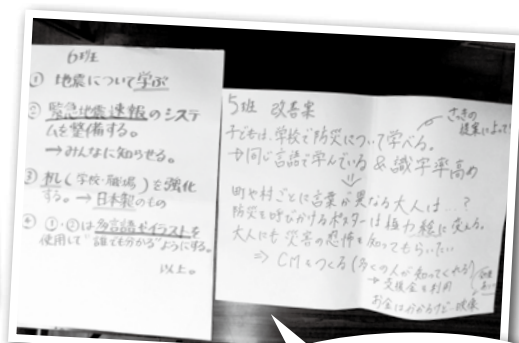 6班
① 地震について学ぶ
② 緊急地震速報のシステ
ムを整備する。
→みんなに知らせる。
③ 押し(学校・職場)を強化
する。→日本製のもの
④ ①・②は多言語やイラストを
使用して"誰でも分かる"ようにする。
以上。
5班 改善案
さっきの
提案によって
子どもは、学校で防災について学べる。
同じ言語で学んでいる & 識字率高め
町や村ごとに言葉が異なる大人は…?
防災を呼びかけるポスターは極力絵に交える。
大人にも災害の恐怖を知ってもらいたい
⇒ CMをつくる(多くの人が知ってくれる)
→支援金を利用